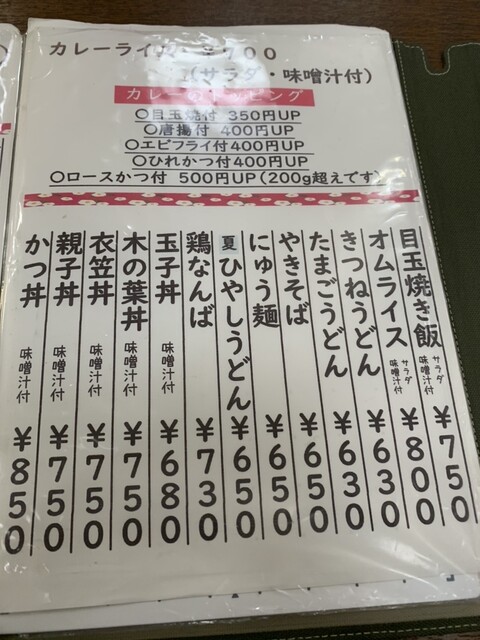 カレーライス ¥700
(サラダ・味噌汁付)
カレーのトッピング
○目玉焼付 350円UP
○唐揚付 400円UP
○エビフライ付400円UP
○ひれかつ付400円UP
○ロースかつ付 500円UP(200g超えです)
目玉焼き飯 サラダ 味噌汁付 ¥750
オムライス サラダ 味噌汁付 ¥800
きつねうどん ¥630
たまごうどん ¥630
やきそば ¥650
にゅう麺 ¥650
夏 ひやしうどん ¥650
鶏なんば ¥730
玉子丼 味噌汁付 ¥680
木の葉丼 味噌汁付 ¥750
衣笠丼 味噌汁付 ¥750
親子丼 味噌汁付 ¥750
かつ丼 味噌汁付 ¥850